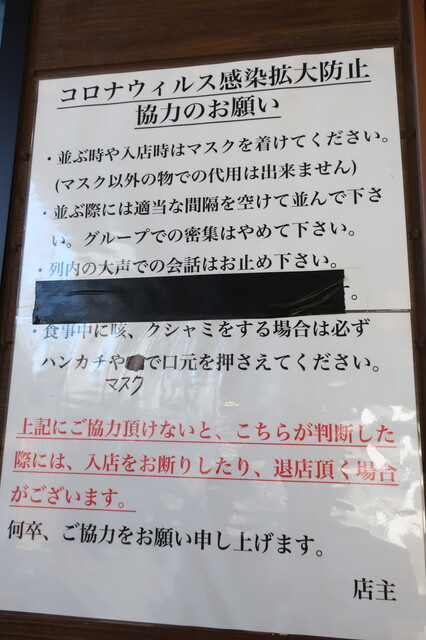 コロナウィルス感染拡大防止
協力のお願い
・並ぶ時や入店時はマスクを着けてください。
(マスク以外の物での代用は出来ません)
・並ぶ際には適当な間隔を空けて並んで下さ
い。グループでの密集はやめて下さい。
・列内の大声での会話はお止め下さい。
。
・食事中に咳、クシャミをする場合は必ず
ハンカチやで口元を押さえてください。
マスク
上記にご協力頂けないと、こちらが判断した
際には、入店をお断りしたり、退店頂く場合
がございます。
何卒、ご協力をお願い申し上げます。
店主